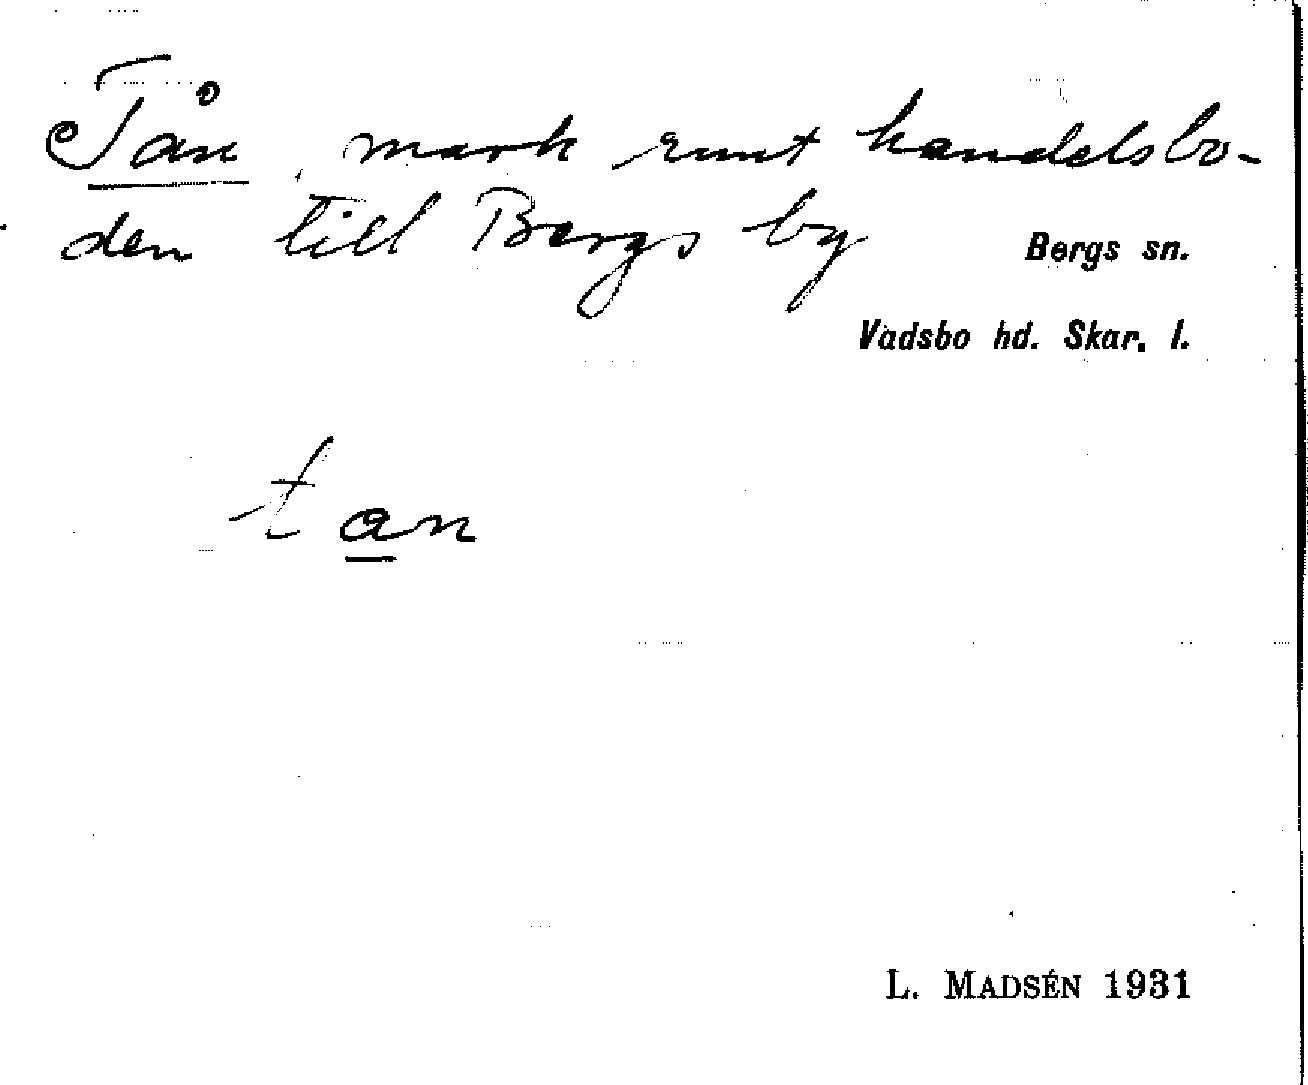 Tån, mark runt handelsbo-
den till Bergs by
Bergs sn.
Vadsbo hd. Skar. l.
tan
L. MADSÉN 1931